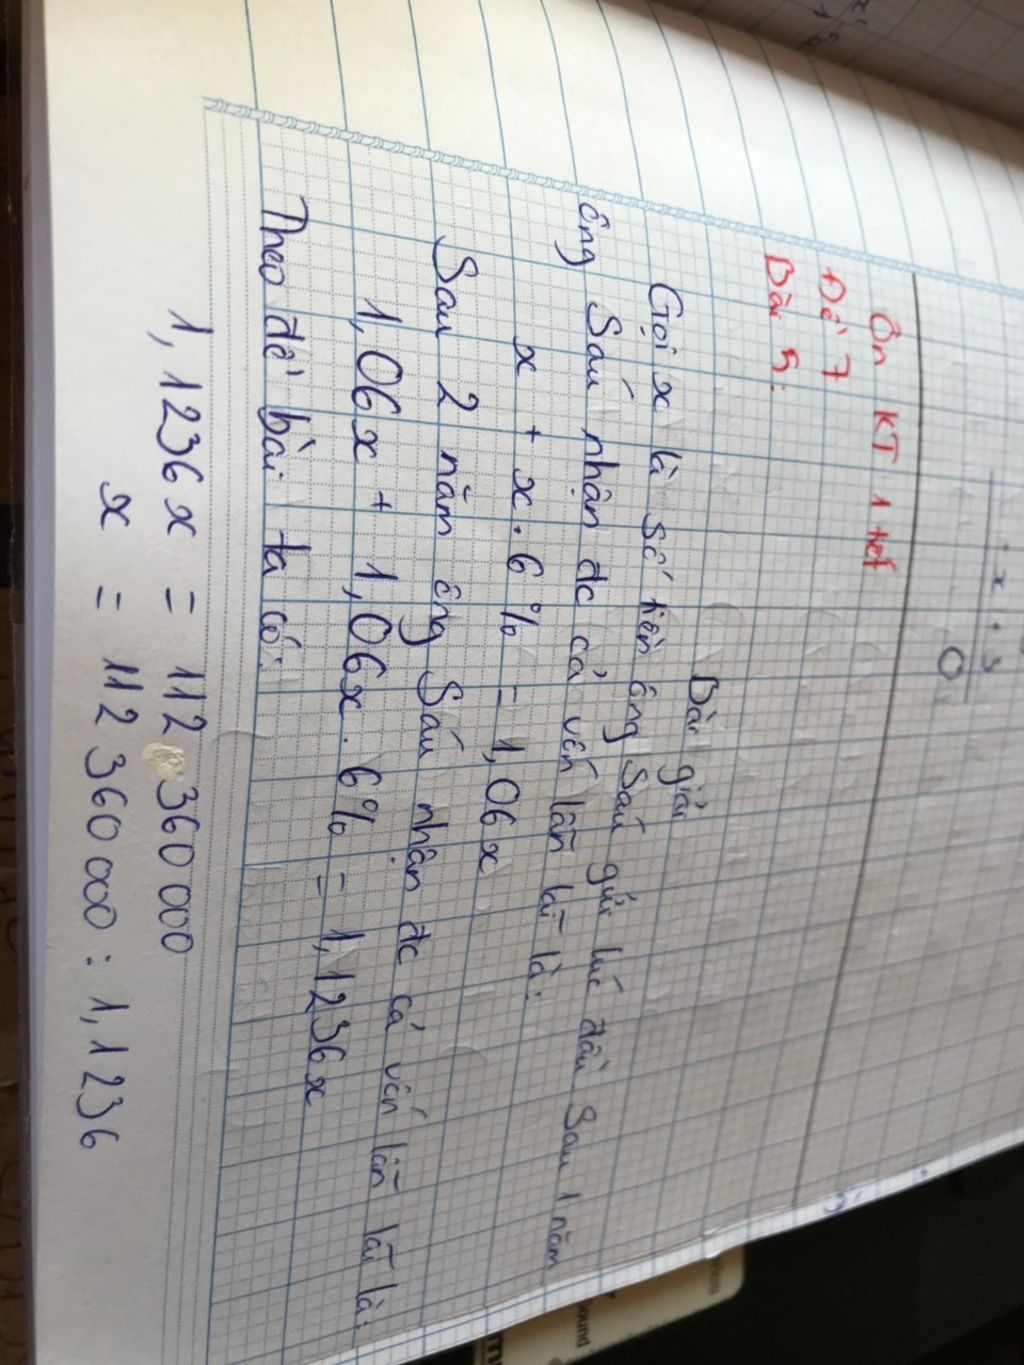 Ôn KT 1 tiết
Đề 7
Bài 5:
Bài giải
Gọi x là số tiền ông Sáu gửi lúc đầu Sau 1 năm
ông Sáu nhận đc cả vốn lẫn lãi là:
x + x . 6% = 1,06x
Sau 2 năm ông Sáu nhận đc cả vốn lẫn lãi là:
1,06x + 1,06x . 6% = 1,1236x
Theo đề bài ta có:
1,1236x = 112 360 000
x = 112 360 000 : 1,1236